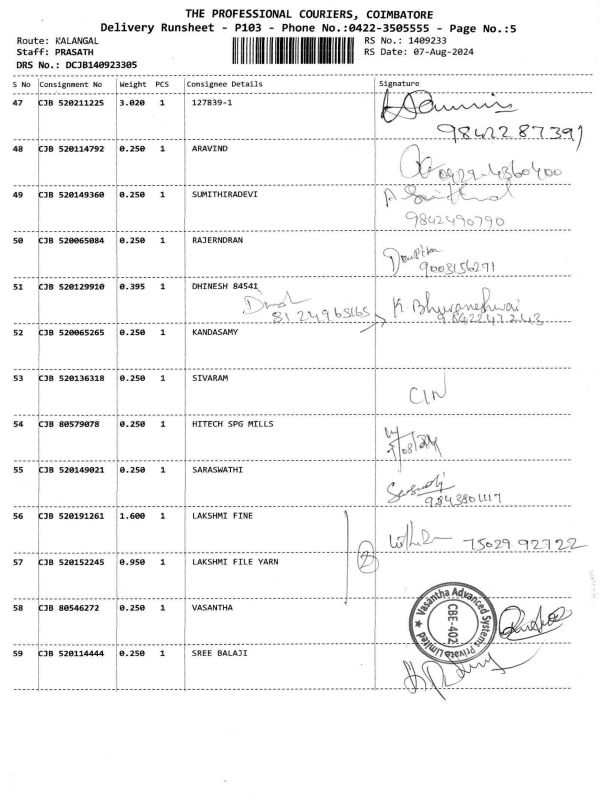 THE PROFESSIONAL COURIERS, COIMBATORE
Delivery Runsheet - P103 - Phone No.:0422-3505555 - Page No.:5
Route: KALANGAL RS No.: 1409233
Staff: PRASATH RS Date: 07-Aug-2024
DRS No.: DCJB140923305
S No Consignment No Weight PCS Consignee Details Signature
47 CJB 520211225 3.020 1 127839-1
9842287391
48 CJB 520114792 0.250 1 ARAVIND
49 CJB 520149360 0.250 1 SUMITHIRADEVI
9842490790
50 CJB 520065084 0.250 1 RAJERNDRAN
9003156271
51 CJB 520129910 0.395 1 DHINESH 84541
K. Bhuvaneshwari
8124965165 9842247243
52 CJB 520065265 0.250 1 KANDASAMY
53 CJB 520136318 0.250 1 SIVARAM
CIN
54 CJB 80579078 0.250 1 HITECH SPG MILLS
55 CJB 520149021 0.250 1 SARASWATHI
56 CJB 520191261 1.600 1 LAKSHMI FINE
75029 92722
57 CJB 520152245 0.950 1 LAKSHMI FILE YARN
2
58 CJB 80546272 0.250 1 VASANTHA
Vasantha Advanced Systems Private Limited
CBE-402
59 CJB 520114444 0.250 1 SREE BALAJI